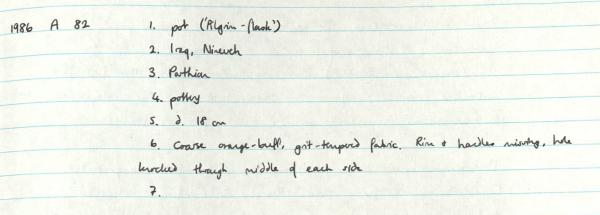 1986 A 82 1. pot ('Pilgrim-flask')
2. Iraq, Nineveh
3. Parthian
4. pottery
5. d. 18 cm
6. Coarse orange-buff, grit-tempered fabric. Rim & handles missing, hole
knocked through middle of each side
7.